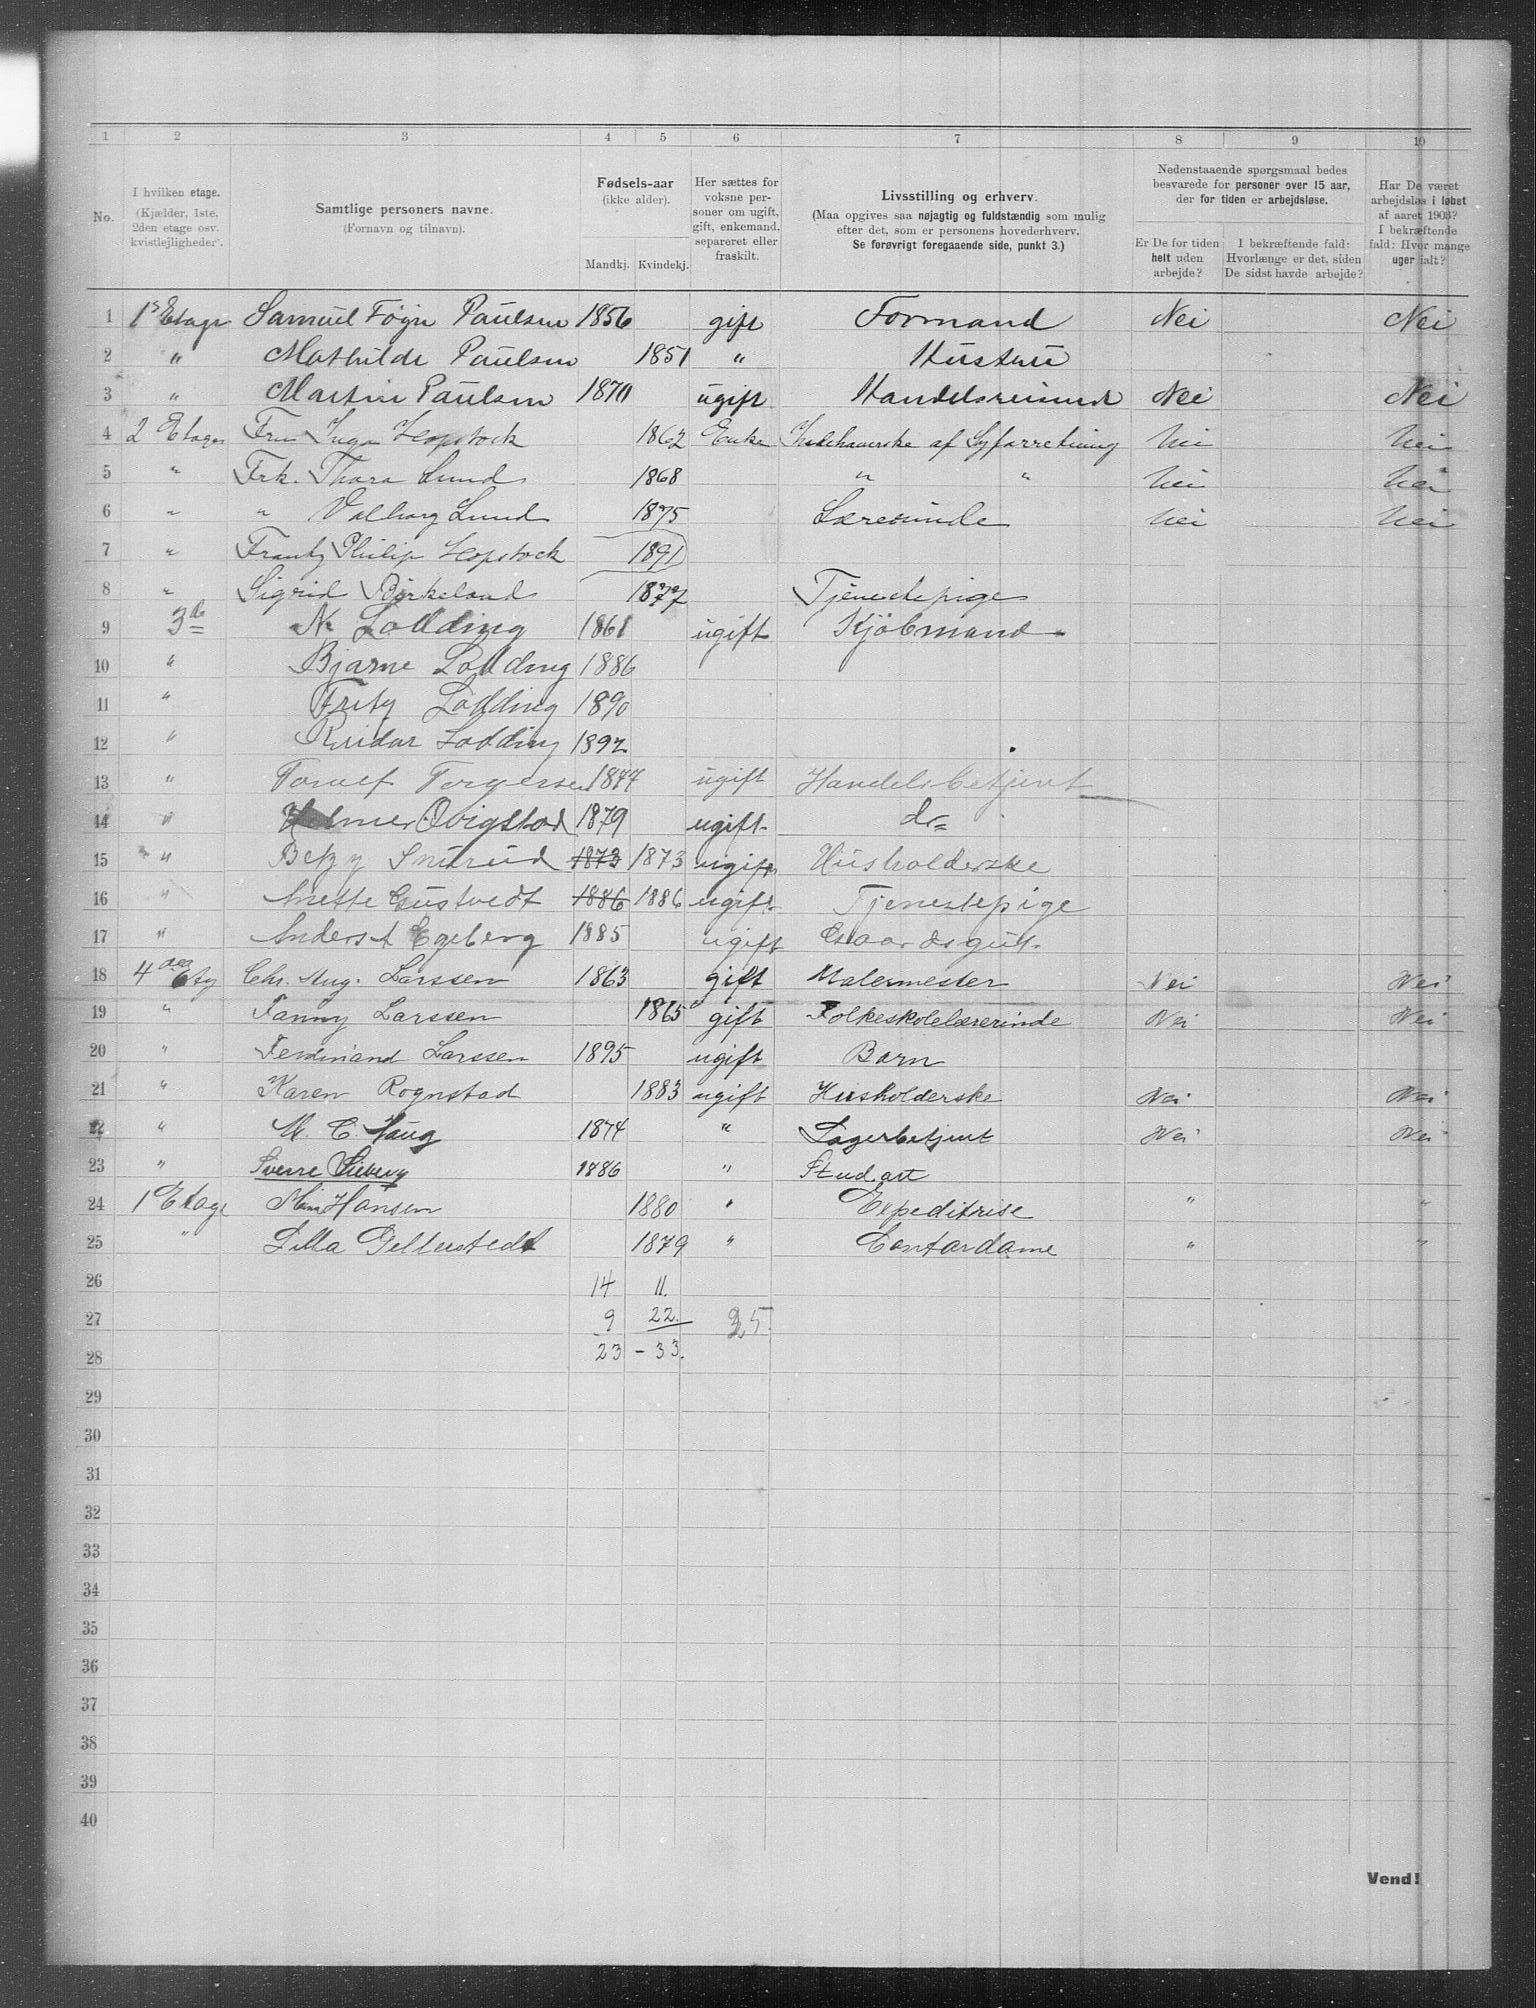 1 2 3 4 5 6 7 8 9 10
No.
I hvilken etage.
(Kjælder, 1ste,
2den etage osv.
kvistlejligheder).
Samtlige personers navne.
(Fornavn og tilnavn).
Fødsels-aar
(ikke alder).
Mandkj. Kvindekj.
Her sættes for
voksne per-
soner om ugift,
gift, enkemand,
separeret eller
fraskilt.
Livsstilling og erhverv.
(Maa opgives saa nøjagtig og fuldstændig som mulig
efter det, som er personens hovederhverv.
Se forøvrigt foregaaende side, punkt 3.)
Nedenstaaende spørgsmaal bedes
besvarede for personer over 15 aar,
der for tiden er arbejdsløse.
Er De for tiden
helt uden
arbejde?
I bekræftende fald:
Hvorlænge er det, siden
De sidst havde arbejde?
Har De været
arbejdsløs i løbet
af aaret 1903?
I bekræftende
fald: Hvor mange
uger ialt?
1 1s Etage Samuel Föyn Paulsen 1856 gift Formand Nei Nei
2 " Mathilde Paulsen 1851 " Hustru
3 " Martin Paulsen 1870 ugift Handelsreisende Nei Nei
4 2 Etage Fru Inga Kopstock 1862 Enke Indehaverske af Syforretning Nei Nei
5 " Frk. Thora Lund 1868 " " Nei Nei
6 " " Valborg Lund 1875 Lærerinde Nei Nei
7 " Frantz Philip Kopstock 1891
8 " Sigrid Birkeland 1877 Tjenestepige
9 3d N. Lodding 1861 ugift Kjöbmand
10 " Bjarne Lodding 1886
11 " Fritz Lodding 1890
12 " Reidar Lodding 1892
13 " Toralf Torgersen 1877 ugift Handelsbetjent
14 " Qvigstad 1879 ugift do
15 " Betzy Snurud 1873 1873 ugift Husholderske
16 " Anette Gustvedt 1886 1886 ugift Tjenestepige
17 " Anders A Egeberg 1885 ugift Gaardsgut
18 4 Etg Chr. Aug. Larssen 1863 gift Malermester Nei Nei
19 " Fanny Larssen 1865 gift Folkeskolelærerinde Nei Nei
20 " Ferdinand Larssen 1895 ugift Barn
21 " Karen Rognstad 1883 ugift Husholderske Nei Nei
22 " M. C. Haug 1874 " Lagerbetjent Nei Nei
23 " Sverre Sieberg 1886 " Student
24 1 Etage Hansen 1880 " Expeditrise " "
25 " Lilla Gellerstedt 1879 " Contordame " "
26 14 11.
27 9 22. 25.
28 23 – 33.
29
30
31
32
33
34
35
36
37
38
39
40
Vend!